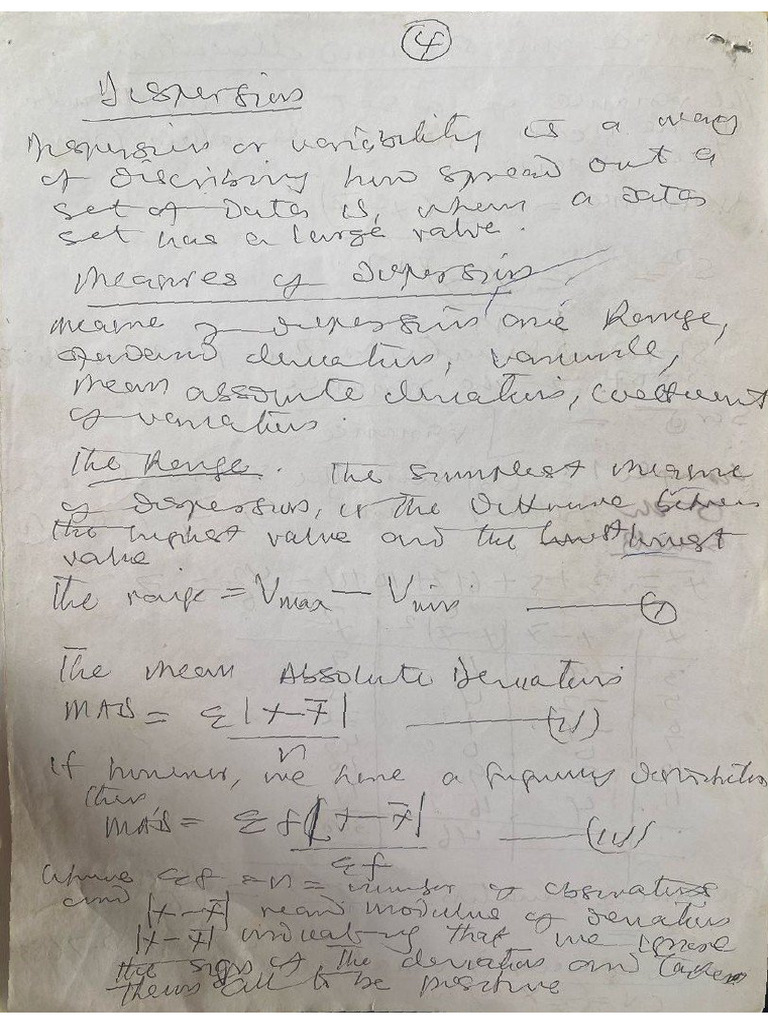 4
Dispersion
Dispersion or variability is a way
of discribing how spread out a
set of Data is, when a data
set has a large value.
Measures of Dispersion
Measure of dispersion are Range,
standard deviation, variance,
mean absolute deviation, coefficient
of variation.
The Range. The simplest measure
of dispersion, is the difference between
the highest value and the lowest
value
The range = Vmax – Vmin (i)
The mean Absolute Deviation
MAD = Σ|x-x̄| (ii)
n
if however, we have a frequency distribution
then
MAD = Σf|x-x̄| (iii)
Σf
Where Σf = n = number of observations
and |x-x̄| read modulus of deviation
|x-x̄| indicating that we ignore
the signs of the deviation and taken
them all to be positive